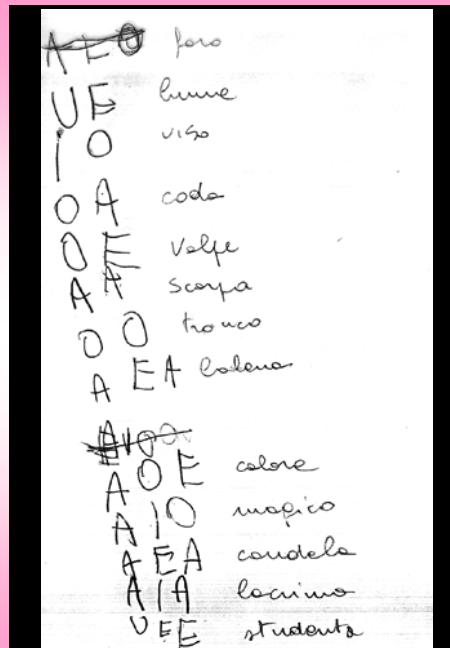 A E O faro
U E lume
I O viso
O A coda
O E Volpe
A A scarpa
O O tronco
A E A balena
A O E calore
A I O magico
A E A candela
A I A lacrima
U E E studente